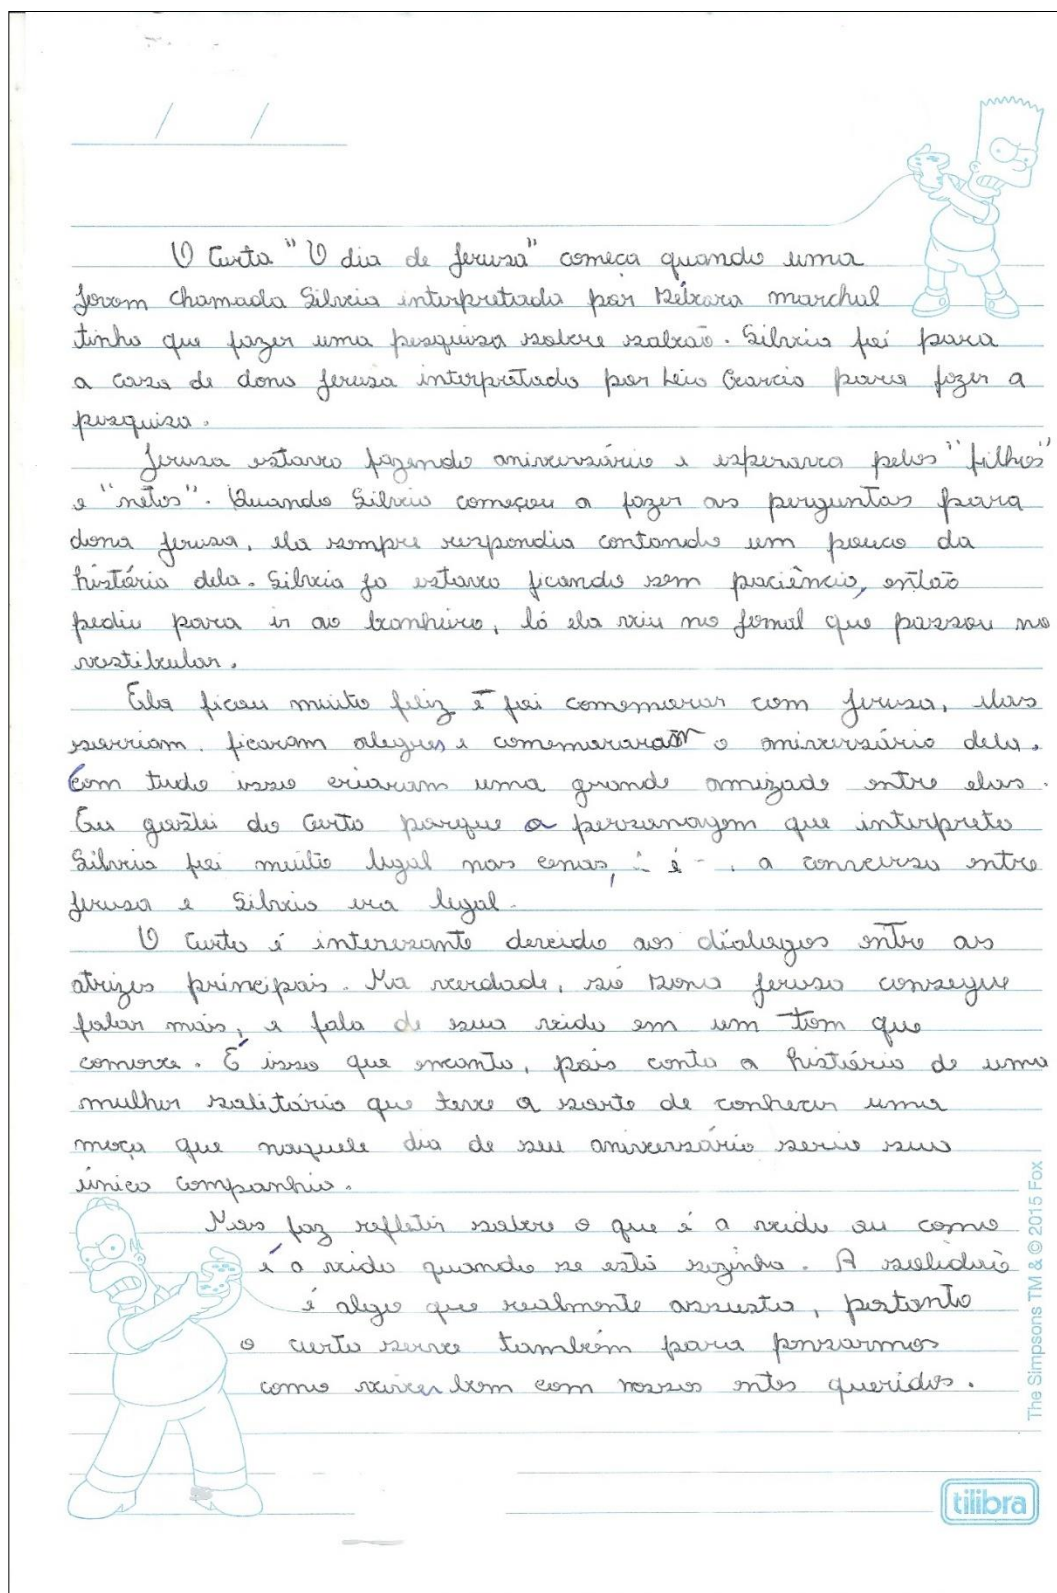 O Curta "O dia de Jerusa" começa quando uma
Jovem chamada Silvia interpretada por Débora marchal
tinha que fazer uma pesquisa sobre sabão. Silvia foi para
a casa de dona Jerusa interpretada por Léia Garcia para fazer a
pesquisa.
Jerusa estava fazendo aniversário e esperava pelos "filhos"
e "netos". Quando Silvia começou a fazer as perguntas para
dona Jerusa, ela sempre respondia contando um pouco da
história dela. Silvia ja estava ficando sem paciência, então
pediu para ir ao banheiro, lá ela viu no jornal que passou no
vestibular.
Ela ficou muito feliz e foi comemorar com Jerusa, elas
sorriam. ficaram alegres e comemoraram o aniversário dela.
Com tudo isso criaram uma grande amizade entre elas.
Eu gostei do Curta porque a personagem que interpreta
Silvia foi muito legal nas cenas, é a conversa entre
Jerusa e Silvia era legal.
O Curta é interessante devido aos diálogos entre as
atrizes principais. Na verdade, só Dona Jerusa consegue
falar mais, e fala de sua vida em um tom que
comove. É isso que encanta, pois conta a história de uma
mulher solitária que teve a sorte de conhecer uma
moça que naquele dia de seu aniversário seria sua
única companhia.
Nos faz refletir sobre o que é a vida ou como
é a vida quando se está sozinha. A solidão
é algo que realmente assusta, portanto
o curta serve também para pensarmos
como viver bem com nossos entes queridos.
The Simpsons TM & © 2015 Fox
tilibra